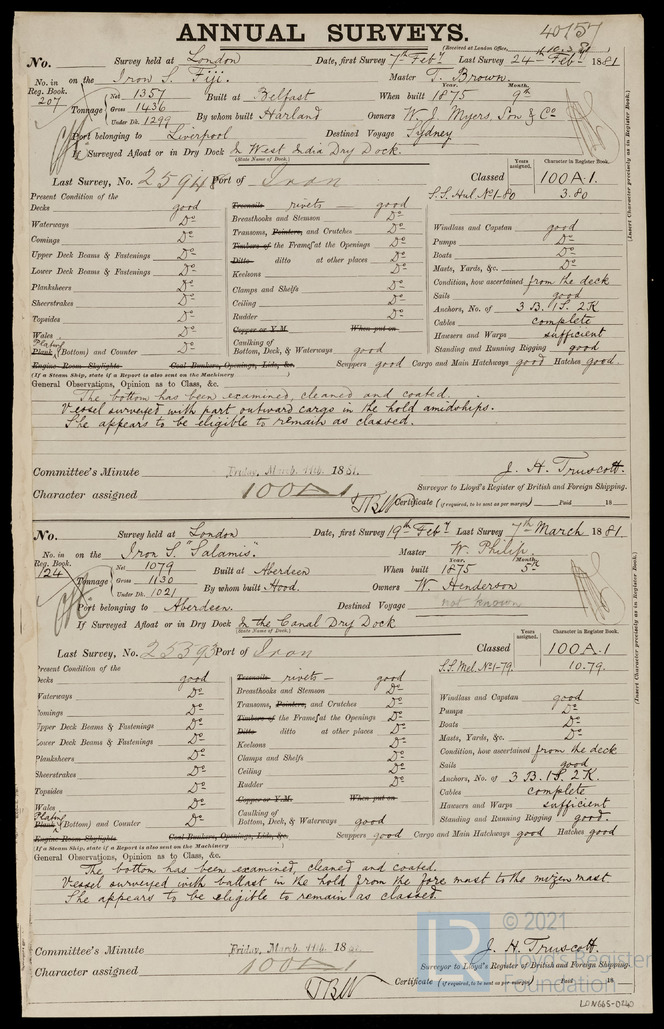 ANNUAL SURVEYS.
40157
(Received at London Office,
No. Survey held at London Date, first Survey 7th Feby Last Survey 24th Feby 1881
No. in on the Iron S. Fiji. Master T. Brown.
Reg. Book. 207
Tonnage Net 1357 Built at Belfast When built Year. 1875 Month. 9th
Gross 1436
Under Dk. 1299 By whom built Harland Owners W. J. Myers, Son & Co
Port belonging to Liverpool Destined Voyage Sydney
If Surveyed Afloat or in Dry Dock & West India Dry Dock.
(State Name of Dock.)
Last Survey, No. 25948 Port of Iron Classed Years assigned Character in Register Book. 100A.1
S.S. Hul. No1-80 3.80
(Insert Character precisely as in Register Book.)
Present Condition of the
Decks good
Waterways Do
Comings Do
Upper Deck Beams & Fastenings Do
Lower Deck Beams & Fastenings Do
Planksheers Do
Sheerstrakes Do
Topsides Do
Wales Do
Plating
Plank (Bottom) and Counter Do
Treenails rivets — good
Breasthooks and Stemson Do
Transoms, Pointers, and Crutches Do
Timbers of the Frames at the Openings Do
Ditto ditto at other places Do
Keelsons Do
Clamps and Shelfs Do
Ceiling Do
Rudder Do
Copper or Y.M. When put on
Caulking of
Bottom, Deck, & Waterways good
Windlass and Capstan good
Pumps Do
Boats Do
Masts, Yards, &c. Do
Condition, how ascertained from the deck
Sails good
Anchors, No. of 3 B. 1 S. 2 K
Cables complete
Hawsers and Warps sufficient
Standing and Running Rigging good
Engine Room Skylights Coal Bunkers, Openings, Lids, &c. Scuppers good Cargo and Main Hatchways good Hatches good
(If a Steam Ship, state if a Report is also sent on the Machinery )
General Observations, Opinion as to Class, &c.
The bottom has been examined, cleaned and coated.
Vessel surveyed with part outward cargo in the hold amidships.
She appears to be eligible to remain as classed.
Committee's Minute Friday, March, 11th. 1881. J. H. Truscott.
Surveyor to Lloyd's Register of British and Foreign Shipping.
Character assigned 100A1
Certificate (if required, to be sent as per margin) Paid 18
No. Survey held at London Date, first Survey 19th Feby Last Survey 7th March 1881
No. in on the Iron S. "Salamis". Master W. Philip.
Reg. Book. 124
Tonnage Net 1079 Built at Aberdeen When built Year. 1875 Month. 5th
Gross 1130
Under Dk. 1021 By whom built Hood. Owners W. Henderson
Port belonging to Aberdeen. Destined Voyage not known
If Surveyed Afloat or in Dry Dock & the Canal Dry Dock
(State Name of Dock.)
Last Survey, No. 25393 Port of Iron Classed Years assigned Character in Register Book. 100A.1
S.S. Mel. No1-79. 10.79.
(Insert Character precisely as in Register Book.)
Present Condition of the
Decks good
Waterways Do
Comings Do
Upper Deck Beams & Fastenings Do
Lower Deck Beams & Fastenings Do
Planksheers Do
Sheerstrakes Do
Topsides Do
Wales Do
Plating
Plank (Bottom) and Counter Do
Treenails rivets — good
Breasthooks and Stemson Do
Transoms, Pointers, and Crutches Do
Timbers of the Frames at the Openings Do
Ditto ditto at other places Do
Keelsons Do
Clamps and Shelfs Do
Ceiling Do
Rudder Do
Copper or Y.M. When put on
Caulking of
Bottom, Deck, & Waterways good
Windlass and Capstan good
Pumps Do
Boats Do
Masts, Yards, &c. Do
Condition, how ascertained from the deck
Sails good
Anchors, No. of 3 B. 1 S. 2 K.
Cables complete
Hawsers and Warps sufficient
Standing and Running Rigging good.
Engine Room Skylights Coal Bunkers, Openings, Lids, &c. Scuppers good Cargo and Main Hatchways good Hatches good
(If a Steam Ship, state if a Report is also sent on the Machinery )
General Observations, Opinion as to Class, &c.
The bottom has been examined, cleaned and coated.
Vessel surveyed with ballast in the hold from the fore mast to the mizen mast.
She appears to be eligible to remain as classed.
Committee's Minute Friday, March, 11th. 18 J. H. Truscott.
Surveyor to Lloyd's Register of British and Foreign Shipping.
Character assigned 100A1
Certificate (if required, to be sent as per margin) Paid 18
© 2021
LR Lloyd's Register
Foundation
LON665-0240